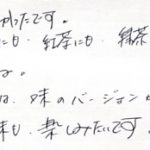 かったです。
にも、紅茶にも、緑茶
ね。
は、味のバージョンが
味も、楽しみたいです。